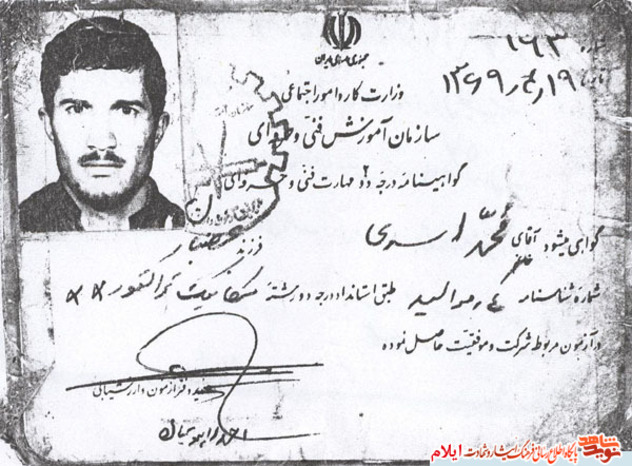 جمهوری اسلامی ایران
شماره ۱۶۳
تاریخ ۱۹ر۴ر۱۳۶۹
وزارت کار و امور اجتماعی
سازمان آموزش فنی و حرفه‌ای
گواهینامه درجه ۲ مهارت فنی و حرفه‌ای
گواهی میشود آقای محمد اسدی
فرزند
شماره شناسنامه ۴ متوالید طبق استاندارد درجه دو رشته مکانیک تراکتور
در آزمون مربوطه شرکت و موفقیت حاصل نموده
دفتر آزمون و ارزشیابی
احمد
نوید شاهد
پایگاه اطلاع رسانی فرهنگ ایثار و شهادت ایلام